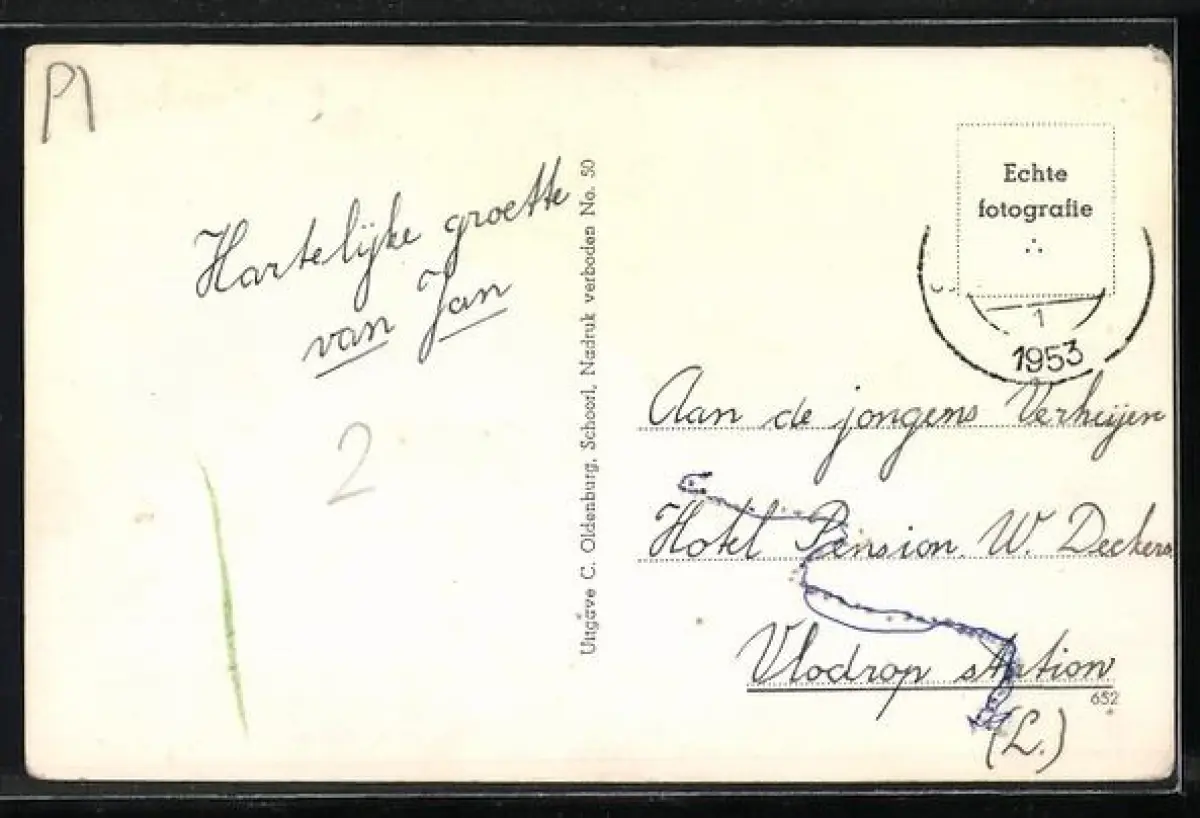 P1
Hartelijke groette
van Jan
2
Uitgave C. Oldenburg, Schoorl, Nadruk verboden No. 50
Echte
fotografie
1
1953
Aan de jongens Verheijen
Hotel Pension W. Deckers
Vlodrop station
652
(L.)